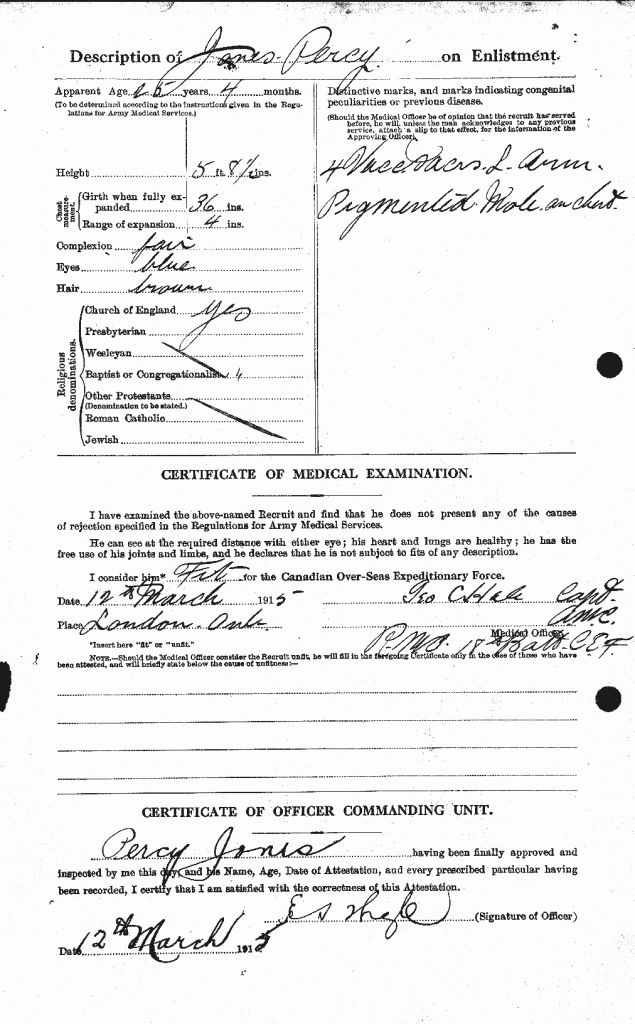 Description of Jones Percy on Enlistment.
Apparent Age 25 years 4 months.
(To be determined according to the instructions given in the Regulations for Army Medical Services.)
Height 5 ft. 8½ ins.
Chest measurement.
Girth when fully expanded 36 ins.
Range of expansion 4 ins.
Complexion fair
Eyes blue
Hair brown
Religious denominations.
Church of England yes
Presbyterian
Wesleyan
Baptist or Congregationalist
Other Protestants
(Denomination to be stated.)
Roman Catholic
Jewish
Distinctive marks, and marks indicating congenital
peculiarities or previous disease.
(Should the Medical Officer be of opinion that the recruit has served
before, he will, unless the man acknowledges to any previous
service, attach a slip to that effect, for the information of the
Approving Officer).
4 Vacc. scars L. Arm.
Pigmented Mole on chest.
CERTIFICATE OF MEDICAL EXAMINATION.
I have examined the above-named Recruit and find that he does not present any of the causes
of rejection specified in the Regulations for Army Medical Services.
He can see at the required distance with either eye; his heart and lungs are healthy; he has the
free use of his joints and limbs, and he declares that he is not subject to fits of any description.
I consider him* Fit for the Canadian Over-Seas Expeditionary Force.
Date 12th March 1915 Geo C Hale Capt.
AMC.
Place London - Ont.
Medical Officer
*Insert here "fit" or "unfit." P.M.O. 18th Batt. C.E.F.
NOTE.—Should the Medical Officer consider the Recruit unfit, he will fill in the foregoing Certificate only in the case of those who have
been attested, and will briefly state below the cause of unfitness:—
CERTIFICATE OF OFFICER COMMANDING UNIT.
Percy Jones having been finally approved and
inspected by me this day, and his Name, Age, Date of Attestation, and every prescribed particular having
been recorded, I certify that I am satisfied with the correctness of this Attestation.
E S (Signature of Officer)
Date 12th March 1915